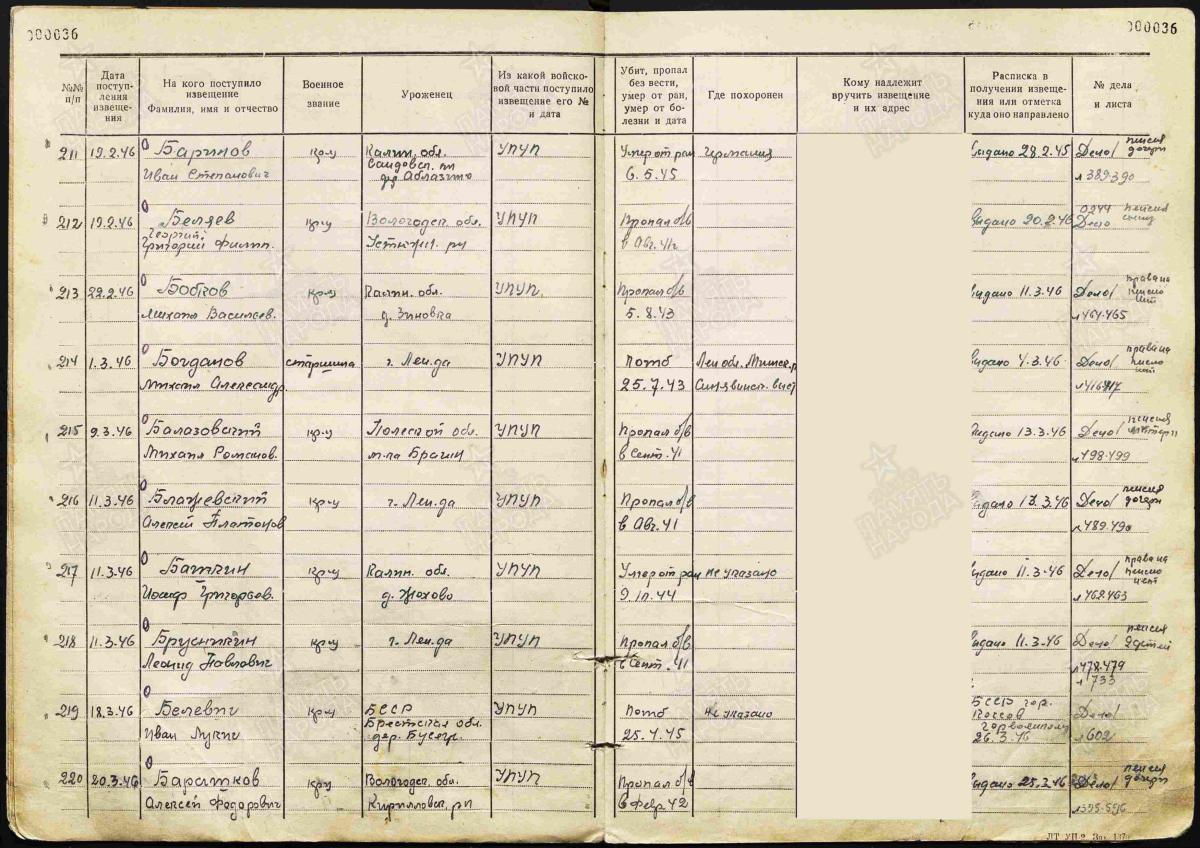 000036
000036
№№ п/п
Дата поступ-ления извеще-ния
На кого поступило извещение
Фамилия, имя и отчество
Военное звание
Уроженец
Из какой войско-вой части поступило извещение его № и дата
Убит, пропал без вести, умер от ран, умер от бо-лезни и дата
Где похоронен
Кому надлежит вручить извещение и их адрес
Расписка в получении извеще-ния или отметка куда оно направлено
№ дела и листа
211 19.2.46 Баринов кр-ц Калин. обл. УПУП Умер от ран Германия Выдано 28.2.45 Дело1 пенсия дочери
Иван Степанович Сандовск. рн 6.5.45 л 389-390
212 19.2.46 Беляев кр-ц Вологодск. обл. УПУП Пропал б/в Выдано 20.2.46 Дело пенсия
Георгий
Григорий Филип. Устюжн. рн в Авг. 41г
213 22.2.46 Бобков кр-ц Калин. обл. УПУП. Пропал б/в Выдано 11.3.46 Дело1 права на пенсию нет
Михаил Васильев. 5.8.43 л 464-465
214 1.3.46 Богданов старшина г. Лен-да УПУП Погиб Лен обл. Мгинск. р Выдано 4.3.46 Дело1 права на пенсию нет
Михаил Александр. 25.7.43 Синявинск. выс
215 9.3.46 Балазовский кр-ц Полеской обл. УПУП Пропал б/в Выдано 13.3.46 Дело1 пенсия матери
Михаил Романов. м-ка Брагин в Сент. 41 л 498-499
216 11.3.46 Блажевский кр-ц г. Лен-да УПУП Пропал б/в Выдано 13.3.46 Дело1 пенсия дочери
Алексей Платонов в Авг. 41 л 489-490
217 11.3.46 Баткин кр-ц Калин. обл. УПУП Умер от ран не указано Выдано 11.3.46 Дело1 права на пенсию нет
Иосиф Григорьев. д. Жохово л 462-463
218 11.3.46 Бруснигин кр-ц г. Лен-да УПУП Пропал б/в Выдано 11.3.46 Дело1 пенсия 2 детей
Леонид Павлович в Сент. 41 л 478-479
л 733
219 18.3.46 Белевич кр-ц БССР УПУП Погиб не указано БССР гор. Коссов Дело1
Иван Лукич Брестская обл. 25.1.45 26.3.46 л 602
220 20.3.46 Баратков кр-ц Вологодск. обл. УПУП Пропал б/в Выдано 25.3.46 Дело1 пенсия дочери
Алексей Федорович Кирилловск. рн в февр 42
ПАМЯТЬ НАРОДА